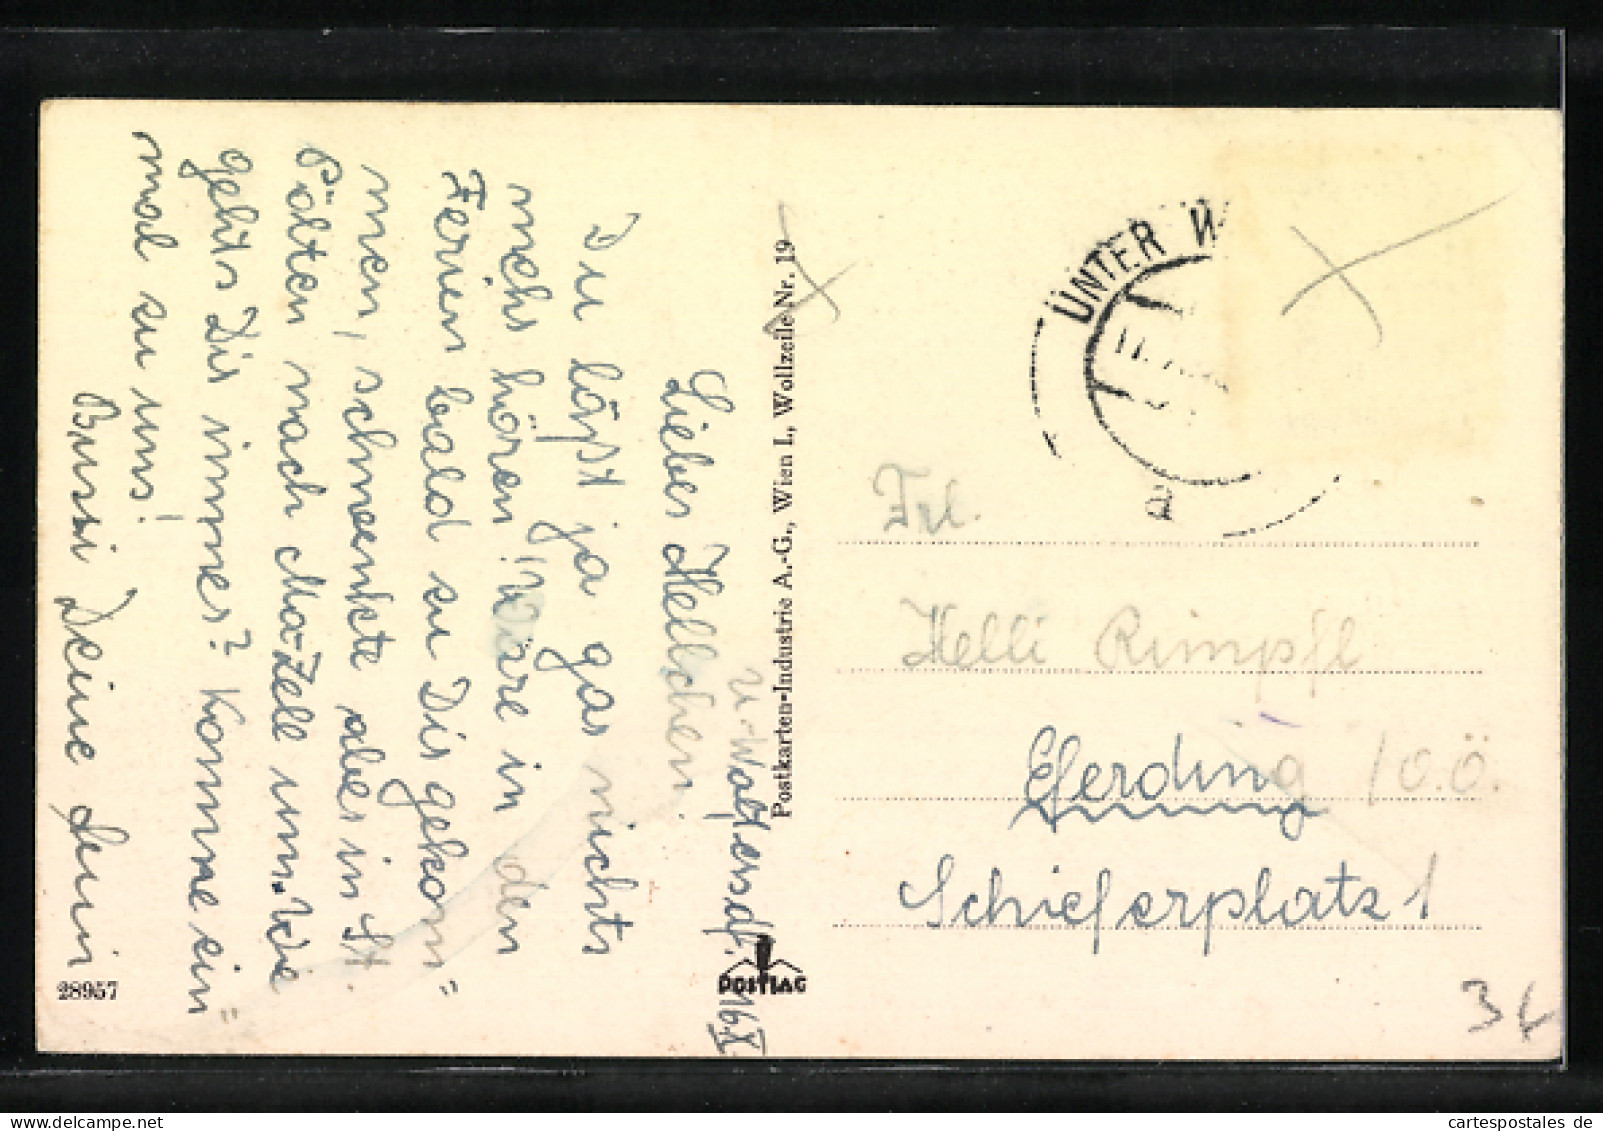 U. Wolfersdf. 16.X.
Liebes Hellchen!
Du läßt ja gar nichts
mehr hören! Wäre in den
Ferien bald zu Dir gekom=
men, schwenkte aber in St.
Pölten nach Ma-Zell um. Wie
geht's Dir immer? Komme ein=
mal zu uns!
Bussi Deine
28957
Postkarten-Industrie A.-G., Wien I., Wollzeile Nr. 19
POSTIAG
UNTER W
a
Frl.
Helli Rimpfl
Eferding / O.Ö.
Schieferplatz 1